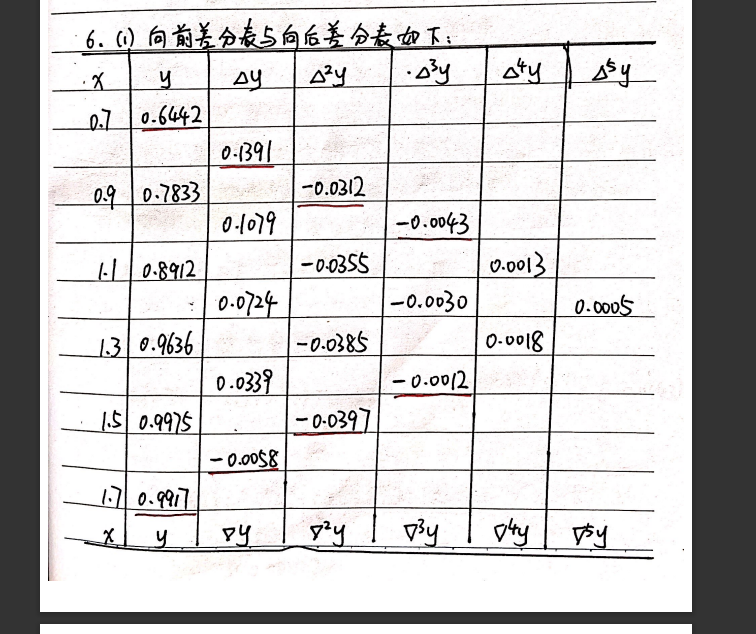 6. (1) 向前差分表与向后差分表如下:
x y Δy Δ²y Δ³y Δ⁴y Δ⁵y
0.7 0.6442
0.1391
0.9 0.7833 -0.0312
0.1079 -0.0043
1.1 0.8912 -0.0355 0.0013
0.0724 -0.0030 0.0005
1.3 0.9636 -0.0385 0.0018
0.0339 -0.0012
1.5 0.9975 -0.0397
-0.0058
1.7 0.9917
x y ∇y ∇²y ∇³y ∇⁴y ∇⁵y